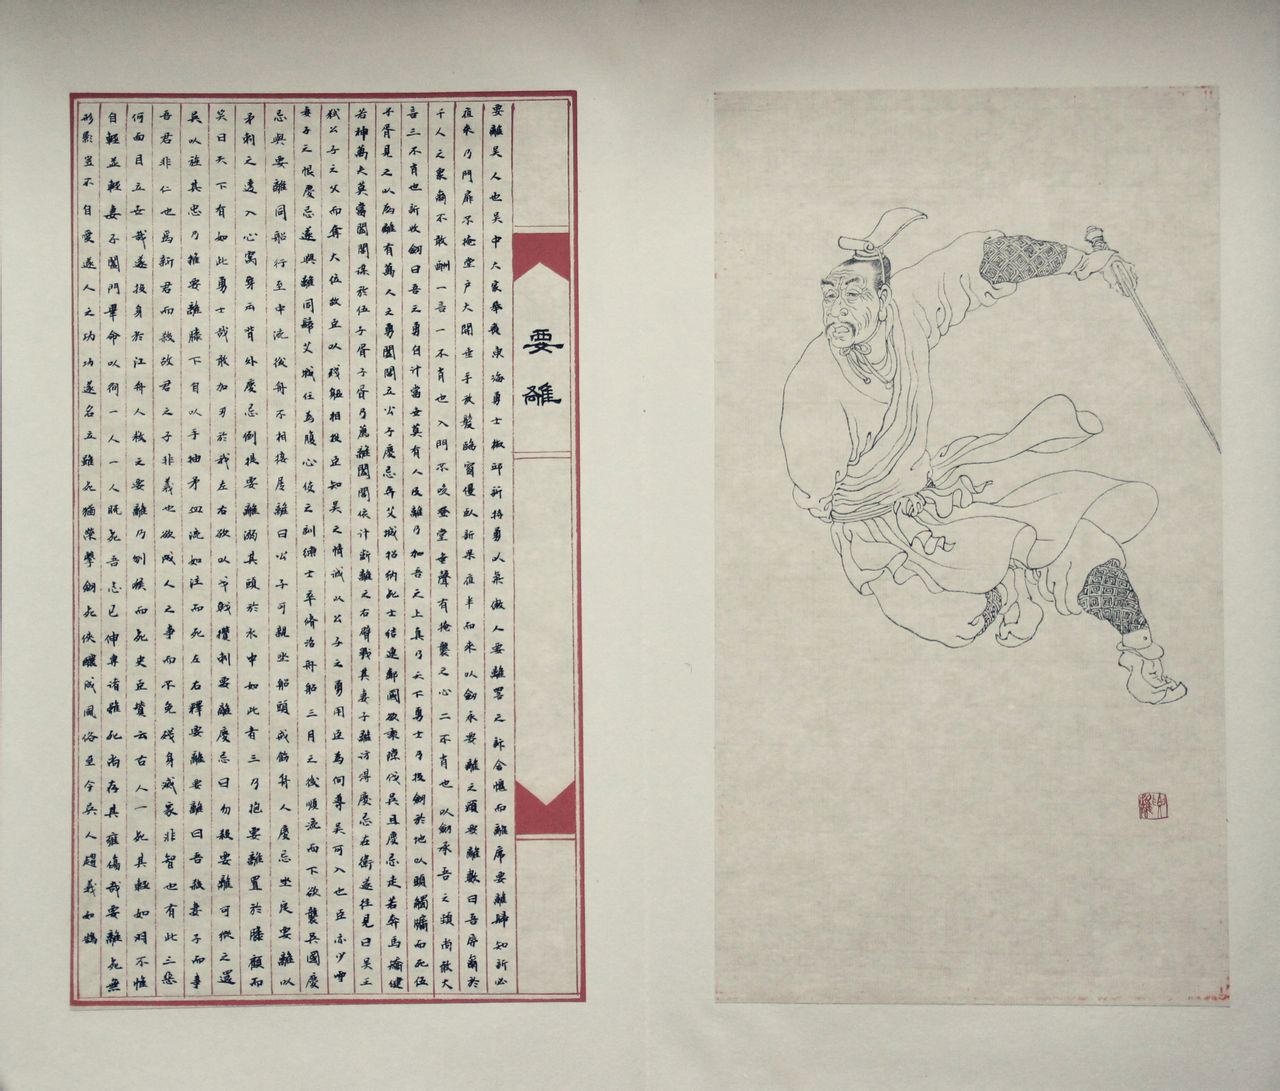 要離
要離吳人也吳中大家舉喪東海勇士椒邱訢恃勇以氣傲人要離詈之訢含愠而離席要離歸知訢必
夜來乃門扉不掩堂戶大開垂手放髮臨窗僵臥訢果夜半而來以劍承要離之頸要離數曰吾辱爾於
千人之衆爾不敢酬一言一不肖也入門不咳登堂無聲有掩襲之心二不肖也以劍承吾之頸尚敢大
言三不肖也訢收劍曰吾之勇自計當世莫有人及離乃加吾之上真乃天下勇士乃投劍於地以頭觸牆而死伍
子胥見之以為離有萬人之勇闔閭立公子慶忌奔艾城招納死士結連鄰國欲乘隙伐吳且慶忌走若奔馬矯健
若神萬夫莫當闔閭謀於伍子胥子胥乃薦離闔閭依計斷離之右臂戮其妻子離訪得慶忌在衛遂往見曰吳王
弒公子之父而奪大位故臣以殘軀相投臣知吳之情誠以公子之勇用臣為向導吳可入也臣亦少雪
妻子之恨慶忌遂與離同歸艾城任為腹心使之訓練士卒脩治舟船三月之後順流而下欲襲吳國慶
忌與要離同船行至中流後舟不相接屬離曰公子可親坐船頭戒飭舟人慶忌坐定要離以
矛刺之透入心窩穿出背外慶忌倒提要離溺其頭於水中如此者三乃抱要離置於膝顧而
笑曰天下有如此勇士哉敢加刃於我左右欲以戈戟攢刺要離慶忌曰勿殺要離可縱之還
吳以旌其忠乃推要離膝下自以手抽矛血流如注而死左右釋要離要離曰吾殺妻子而事
吾君非仁也為新君而殺故君之子非義也欲成人之事而不免殘身滅家非智也有此三惡
何面目立世哉遂投身於江舟人救之要離乃刎疾而死史臣贊云古人一死其輕如羽不惟
自輕並輕妻子闔門畢命以徇一人一人既死吾志已伸專諸雖死尚存其胤傷哉要離死無
形影豈不自愛遂人之功功遂名立雖死猶榮擊劍死俠釀成風俗至今吳人趨義如鵠